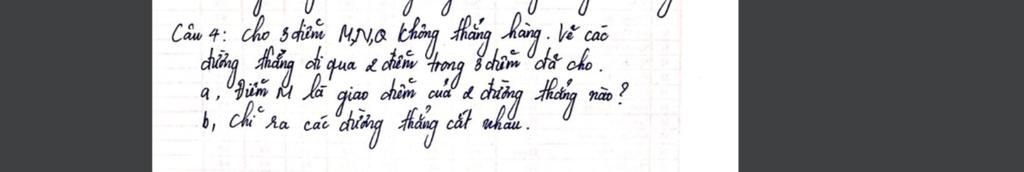 Câu 4: Cho 3 điểm M,N,Q không thẳng hàng. Vẽ các
đường thẳng đi qua 2 điểm trong 3 điểm đã cho.
a, Điểm M là giao điểm của 2 đường thẳng nào?
b, Chỉ ra các đường thẳng cắt nhau.